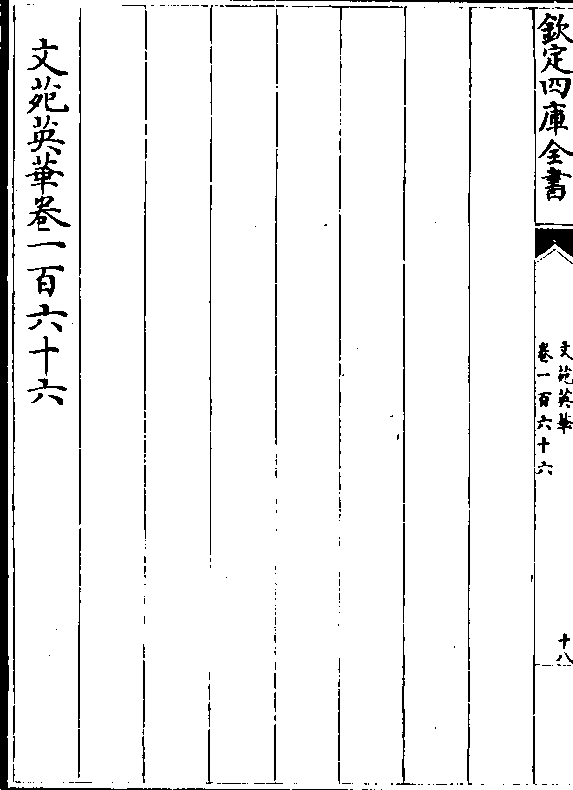 欽定四庫全書
文苑英華
卷一百六十六
十八
文苑英華卷一百六十六